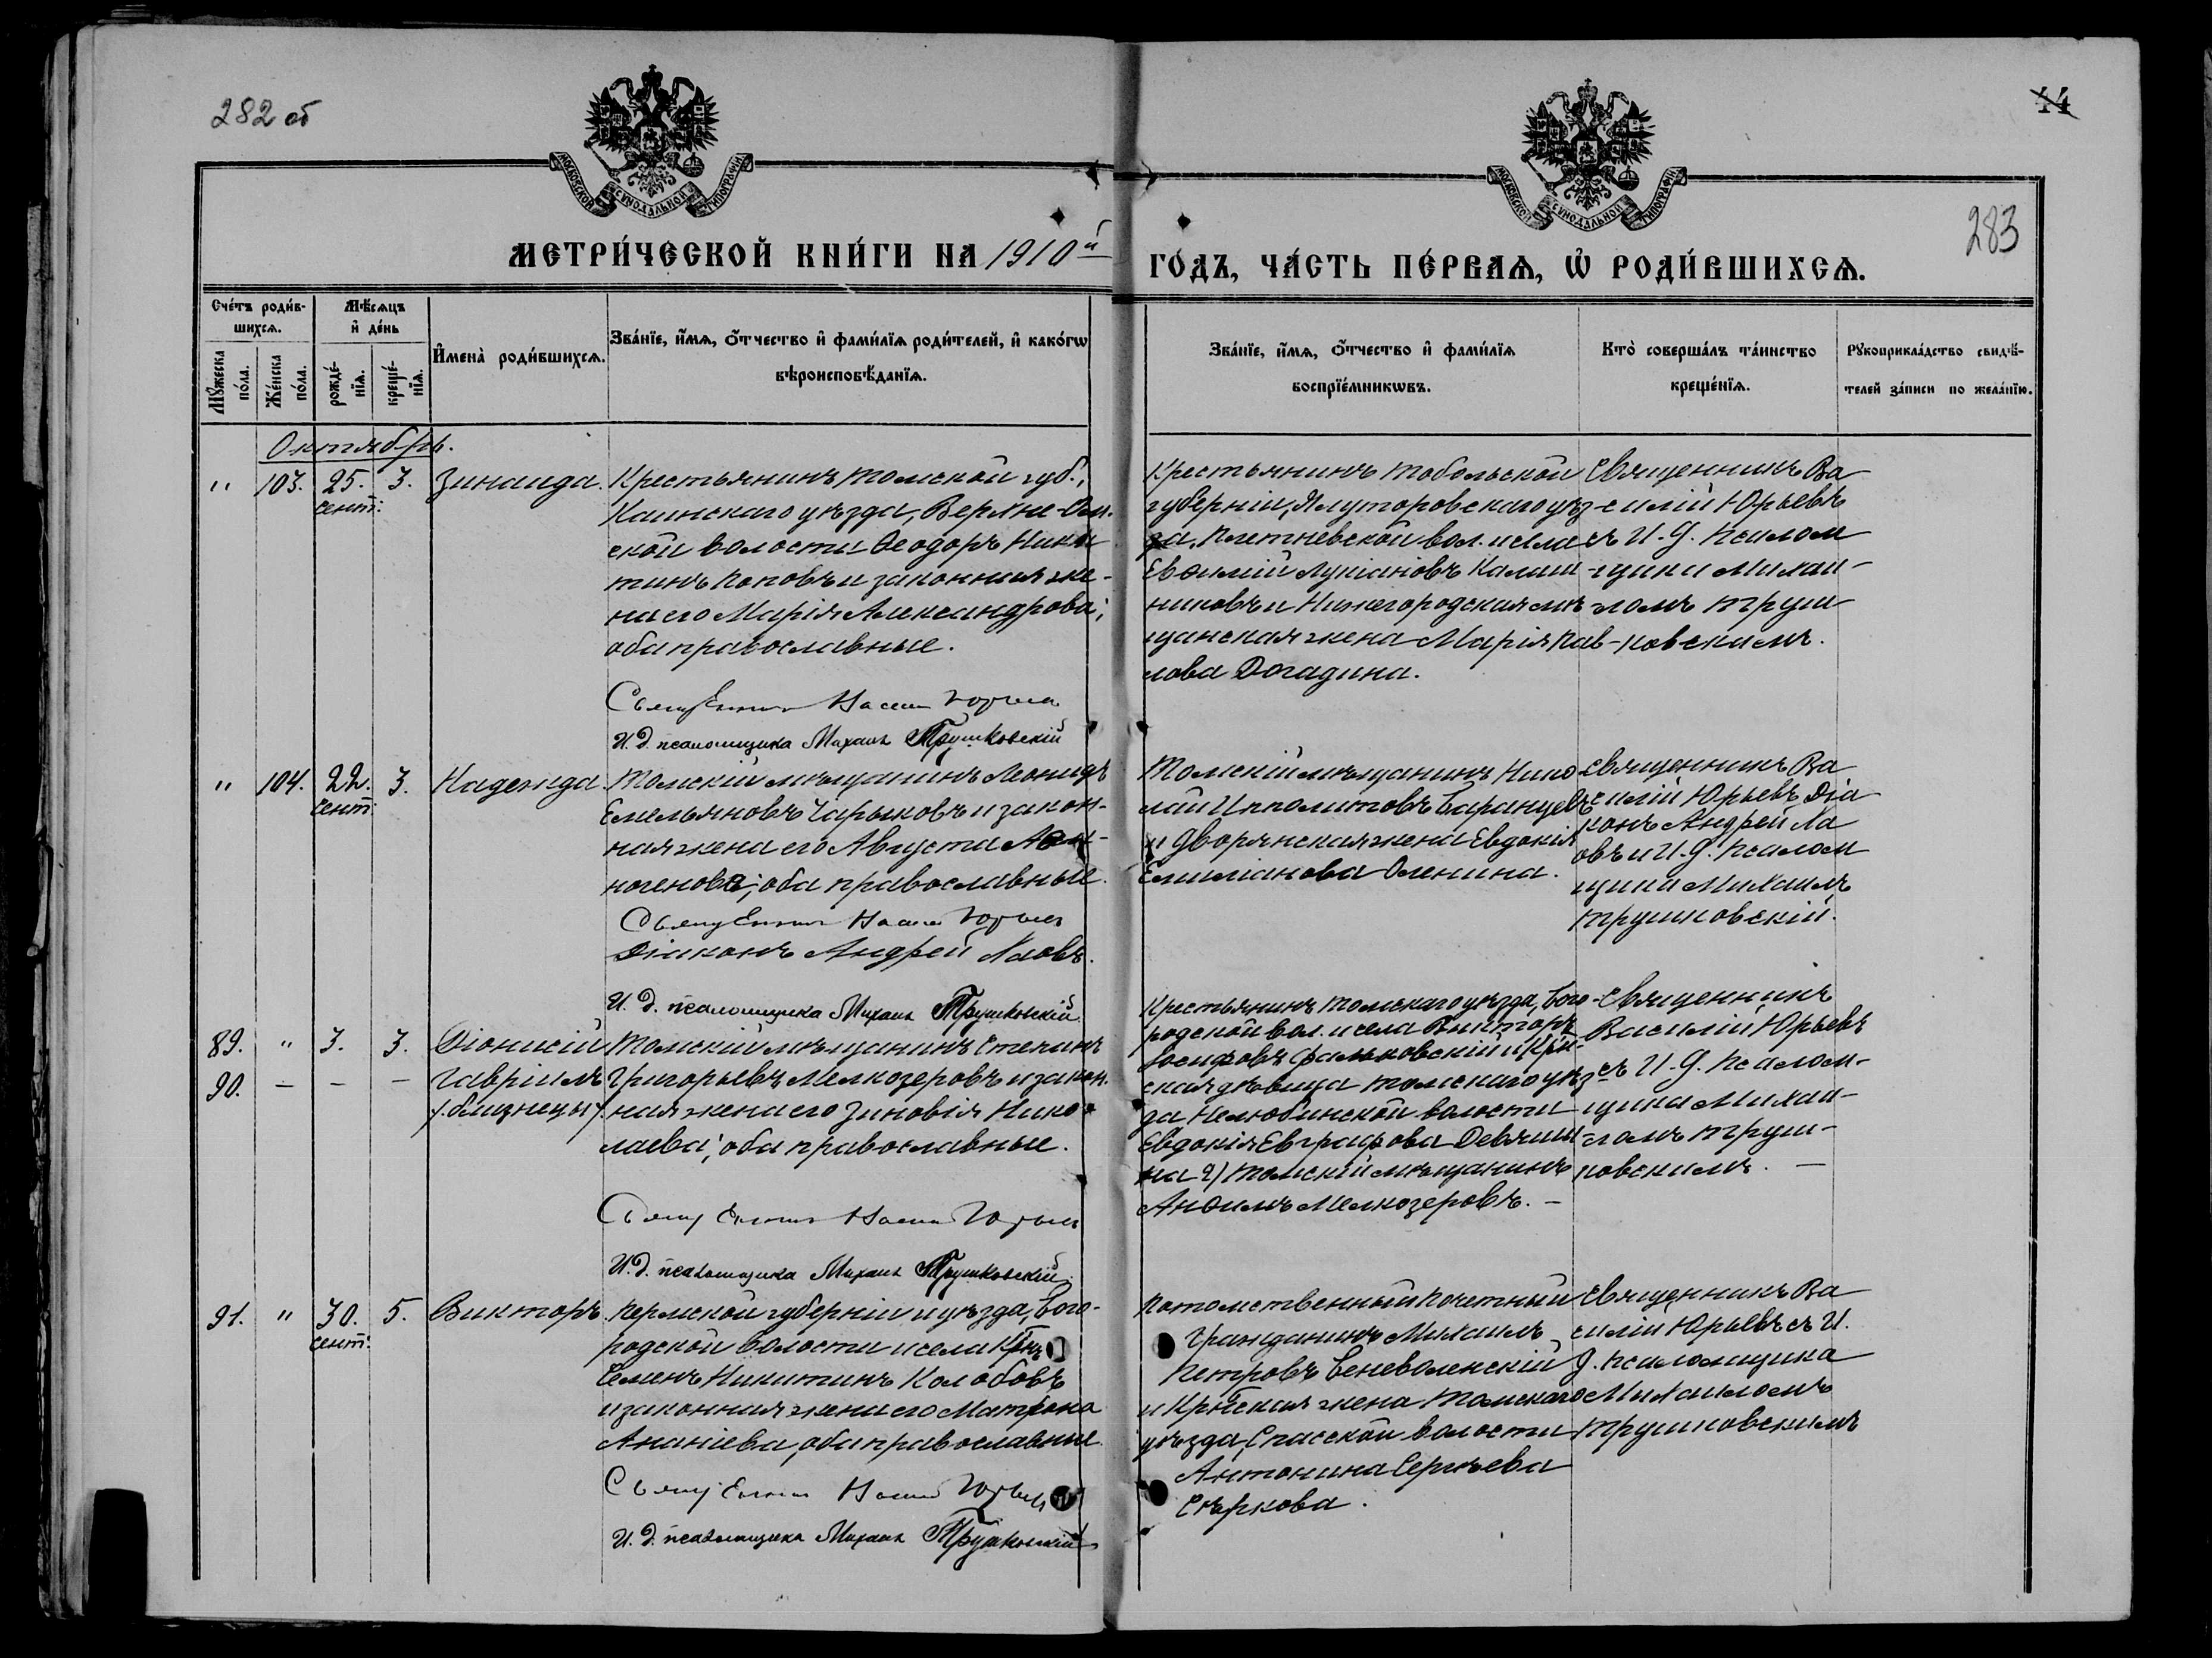 282 об
44
283
МОСКОВСКОЙ СѴНОДАЛЬНОЙ ТИПОГРАФІИ
МОСКОВСКОЙ СѴНОДАЛЬНОЙ ТИПОГРАФІИ
МЕТРИ́ЧЕСКОЙ КНИ́ГИ НА 1910й
ГО́ДЪ, ЧА́СТЬ ПЕ́РВАѦ, Ѽ РОДИ́ВШИХСѦ.
Сче́тъ роди́в-
шихсѧ.
Мꙋ́жеска по́ла.
Же́нска по́ла.
Мѣ́сѧцъ
и҆ де́нь
рожде́-
нїѧ.
креще́-
нїѧ.
И҆мена̀ роди́вшихсѧ.
Зва́нїе, и҆́мѧ, ѻ҆́тчество и҆ фами́лїѧ роди́телей, и҆ како́гѡ
вѣроисповѣ́данїѧ.
Зва́нїе, и҆́мѧ, ѻ҆́тчество и҆ фами́лїѧ
воспрїе́мникѡвъ.
Кто̀ соверша́лъ та́инство
креще́нїѧ.
Рꙋкоприкла́дство свидѣ́-
телей за́писи по жела́нїю.
Октябрь.
" 103. 25. 3. Зинаида.
сент:
Крестьянинъ Томской губ.,
Каинскаго уѣзда, Верхне-Ом-
ской волости Ѳеодоръ Ники
тинъ Поповъ и законная же-
на его Марія Александрова;
оба православные.
Священникъ Васил Юрьевъ
И. д. псаломщика Михаилъ Трушковскій
Крестьянинъ Тобольской
губерніи, Ялуторовскаго уѣз-
да, Плетневской вол. и села
Евѳимій Лукіановъ Калаш-
никовъ и Нижегородская мѣ
щанская жена Марія Пав-
лова Догадина.
Священникъ Ва
силій Юрьевъ
съ И. д. псалом
щика Михаи-
ломъ Труш-
ковскимъ.
" 104. 22. 3. Надежда.
сент:
Томскій мѣщанинъ Леонидъ
Емельяновъ Чарыковъ и закон-
ная жена его Августа
ногенова; оба православные.
Священникъ Васил Юрьевъ
Діаконъ Андрей Лаовъ.
И. д. псаломщика Михаилъ Трушковскій
Томскій мѣщанинъ Нико
лай Ипполитовъ Баранцевъ
и Дворянская жена Евдокія
Емиліанова Оленина.
Священникъ Ва
силій Юрьевъ, Діа
конъ Андрей Ла
овъ и И. д. псалом
щика Михаилъ
Трушковскій.
89. " 3. 3. Діонисій
90. — — — Гавріилъ
/. близнецы /.
Томскій мѣщанинъ Степанъ
Григорьевъ Мелкозеровъ и закон.
ная жена его Зиновія Нико-
лаева; оба православные.
Священникъ Васил Юрьевъ
И. д. псаломщика Михаилъ Трушковскій
Крестьянинъ Томскаго уѣзда, Бого-
родской вол. и села Викторъ
Іосифовъ Фальковскій и Крін-
ская дѣвица Томскаго уѣз
да Нелюбинской волости
Евдокія Евграфова Девяши
на 2) Томскій мѣщанинъ
Анѳимъ Мелкозеровъ. —
Священникъ
Василій Юрьевъ
съ И. д. псалом-
щика Михаи-
ломъ Труш-
ковскимъ. —
91. " 30. 5. Викторъ.
сент:
Пермской губерніи и уѣзда, Бого-
родской волости и села Крнъ
Семенъ Никитинъ Колобовъ
и законная жена его Матрона
Ананіева, оба православные.
Священникъ Васил Юрьевъ
И. д. псаломщика Михаилъ Трушковскій
Потомственный почетный
Гражданинъ Михаилъ
Петровъ Беневоленскій
и Кртская жена Томскаго
уѣзда, Спасской волости
Антонина Сергѣева
Сѣркова.
Священникъ Ва
силій Юрьевъ съ И.
д. псаломщика
Михаиломъ
Трушковскимъ